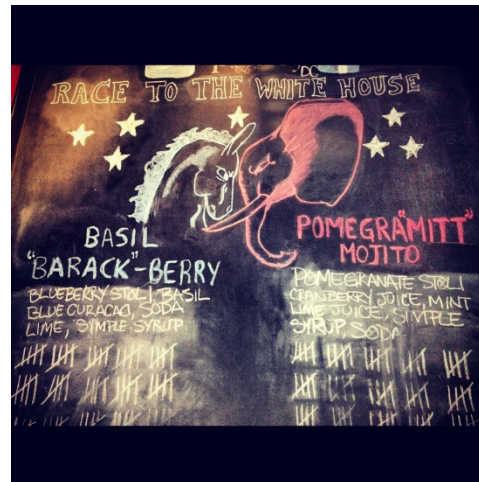 DC
RACE TO THE WHITE HOUSE
BASIL
"BARACK"-BERRY
BLUEBERRY STOLI, BASIL
BLUE CURACAO, SODA
LIME, SIMPLE SYRUP
POMEGRA"MITT"
MOJITO
POMEGRANATE STOLI
CRANBERRY JUICE, MINT
LIME JUICE, SIMPLE
SYRUP SODA